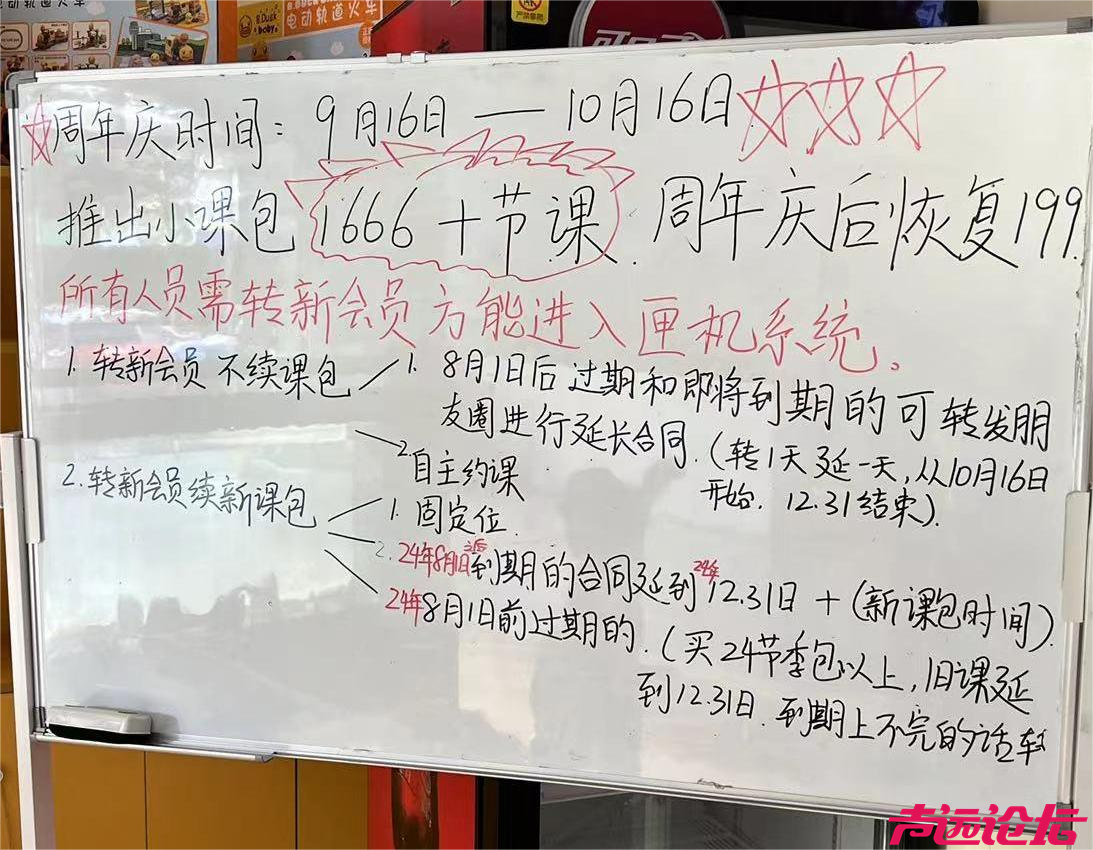 电动轨道火车
B.Duck
baby
电动轨道火车
周年庆时间：9月16日 — 10月16日
推出小课包 1666 十节课. 周年庆后恢复199
所有人员需转新会员方能进入匣机系统。
1. 转新会员 不续课包
1. 8月1日后过期和即将到期的可转发朋
友圈进行延长合同.(转1天延一天,从10月16日
开始. 12.31结束).
2. 自主约课
2. 转新会员续新课包
1. 固定位
2. 24年8月1日之后到期的合同延到24年12.31日 + (新课包时间).
24年8月1日前过期的.(买24节季包以上,旧课延
到12.31日. 到期上不完的话转
声远论坛